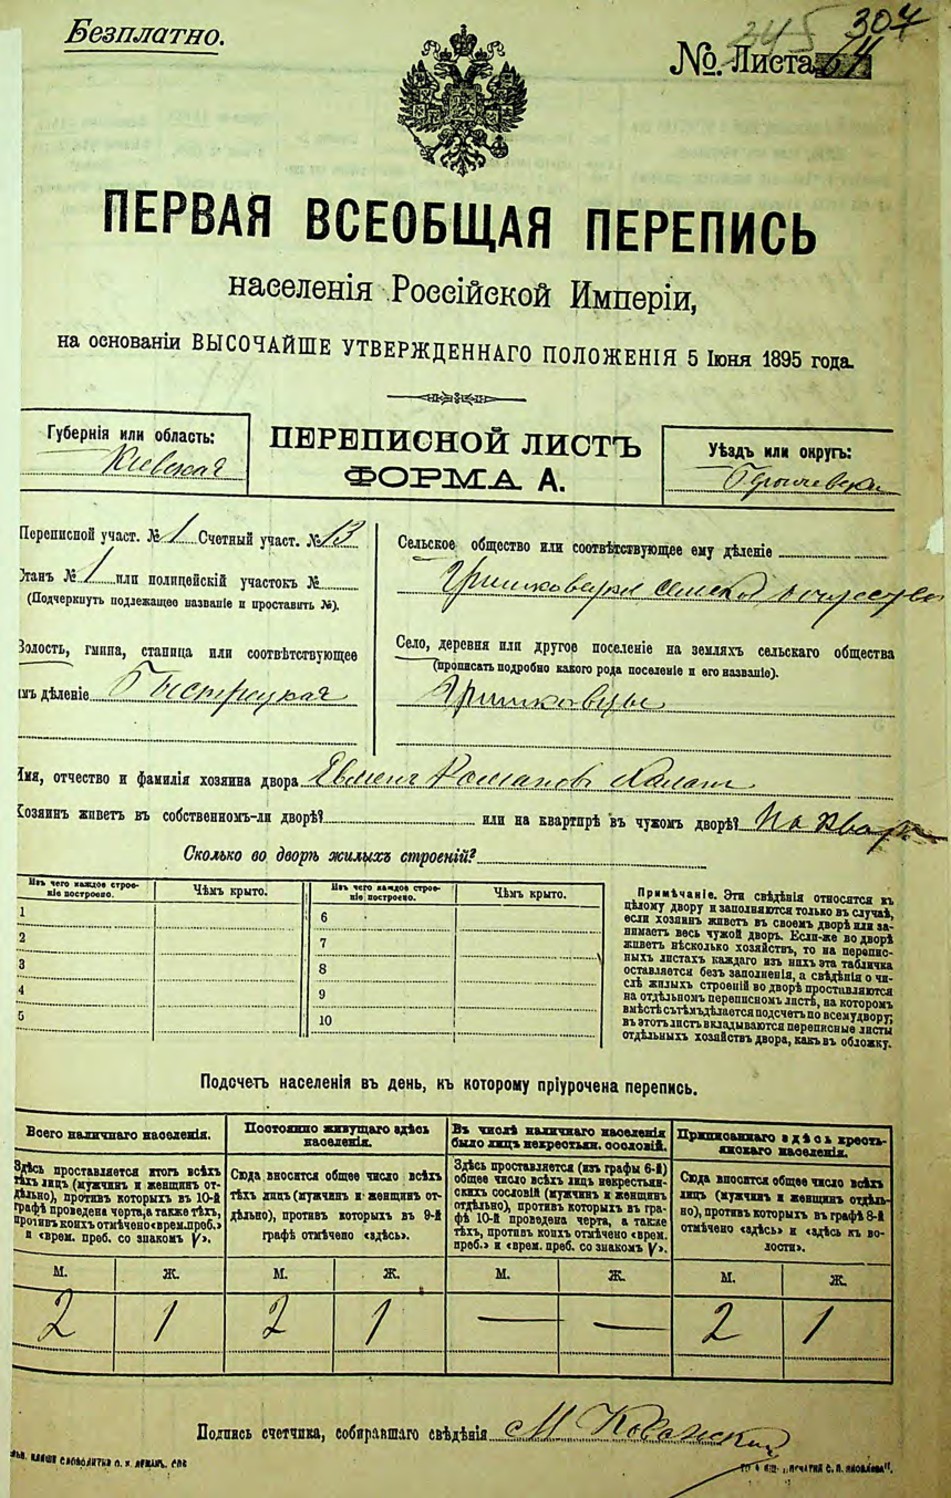 Безплатно.
307
345
№. Листа
ПЕРВАЯ ВСЕОБЩАЯ ПЕРЕПИСЬ
населенія Россійской Имперіи,
на основаніи ВЫСОЧАЙШЕ УТВЕРЖДЕННАГО ПОЛОЖЕНІЯ 5 Іюня 1895 года.
Губернія или область:
Кіевская
ПЕРЕПИСНОЙ ЛИСТЪ
ФОРМА А.
Уѣздъ или округъ:
Переписной участ. № 1 Счетный участ. № 13
Станъ № 1 или полицейскій участокъ №
(Подчеркнуть подлежащее названіе и проставить №).
Волость, гмина, станица или соотвѣтствующее
имъ дѣленіе
Сельское общество или соотвѣтствующее ему дѣленіе
Село, деревня или другое поселеніе на земляхъ сельскаго общества
(прописать подробно какого рода поселеніе и его названіе).
Гришковцы
Имя, отчество и фамилія хозяина двора Евмен Романов
Хозяинъ живетъ въ собственномъ-ли дворѣ? или на квартирѣ въ чужомъ дворѣ? На квар
Сколько во дворѣ жилыхъ строеній?
Изъ чего каждое строе-
ніе построено.
Чѣмъ крыто.
1
2
3
4
5
Изъ чего каждое строе-
ніе построено.
Чѣмъ крыто.
6
7
8
9
10
Примѣчаніе. Эти свѣдѣнія относятся къ
цѣлому двору и заполняются только въ случаѣ,
если хозяинъ живетъ въ своемъ дворѣ или за-
нимаетъ весь чужой дворъ. Если-же во дворѣ
живетъ нѣсколько хозяйствъ, то на перепис-
ныхъ листахъ каждаго изъ нихъ эта табличка
оставляется безъ заполненія, а свѣдѣнія о чи-
слѣ жилыхъ строеній во дворѣ проставляются
на отдѣльномъ переписномъ листѣ, на которомъ
вмѣстѣ съ тѣмъ дѣлается подсчетъ по всему двору;
въ этотъ листъ вкладываются переписные листы
отдѣльныхъ хозяйствъ двора, какъ въ обложку.
Подсчетъ населенія въ день, къ которому пріурочена перепись.
Всего наличнаго населенія.
Здѣсь проставляется итогъ всѣхъ
тѣхъ лицъ (мужчинъ и женщинъ от-
дѣльно), противъ которыхъ въ 10-й
графѣ проведена черта, а также тѣхъ,
противъ коихъ отмѣчено «врем. преб.»
и «врем. преб. со знакомъ V».
М. Ж.
2 1
Постоянно живущаго здѣсь
населенія.
Сюда вносится общее число всѣхъ
тѣхъ лицъ (мужчинъ и женщинъ от-
дѣльно), противъ которыхъ въ 9-й
графѣ отмѣчено «здѣсь».
М. Ж.
2 1
Въ числѣ наличнаго населенія
было лицъ некрестьян. сословій.
Здѣсь проставляется (изъ графы 6-й)
общее число всѣхъ лицъ некрестьян-
скихъ сословій (мужчинъ и женщинъ
отдѣльно), противъ которыхъ въ гра-
фѣ 10-й проведена черта, а также
тѣхъ, противъ коихъ отмѣчено «врем.
преб.» и «врем. преб. со знакомъ V».
М. Ж.
— —
Приписаннаго здѣсь кресть-
янскаго населенія.
Сюда вносится общее число всѣхъ
лицъ (мужчинъ и женщинъ отдѣль-
но), противъ которыхъ въ графѣ 8-й
отмѣчено «здѣсь» и «здѣсь къ во-
лости».
М. Ж.
2 1
Подпись счетчика, собиравшаго свѣдѣнія